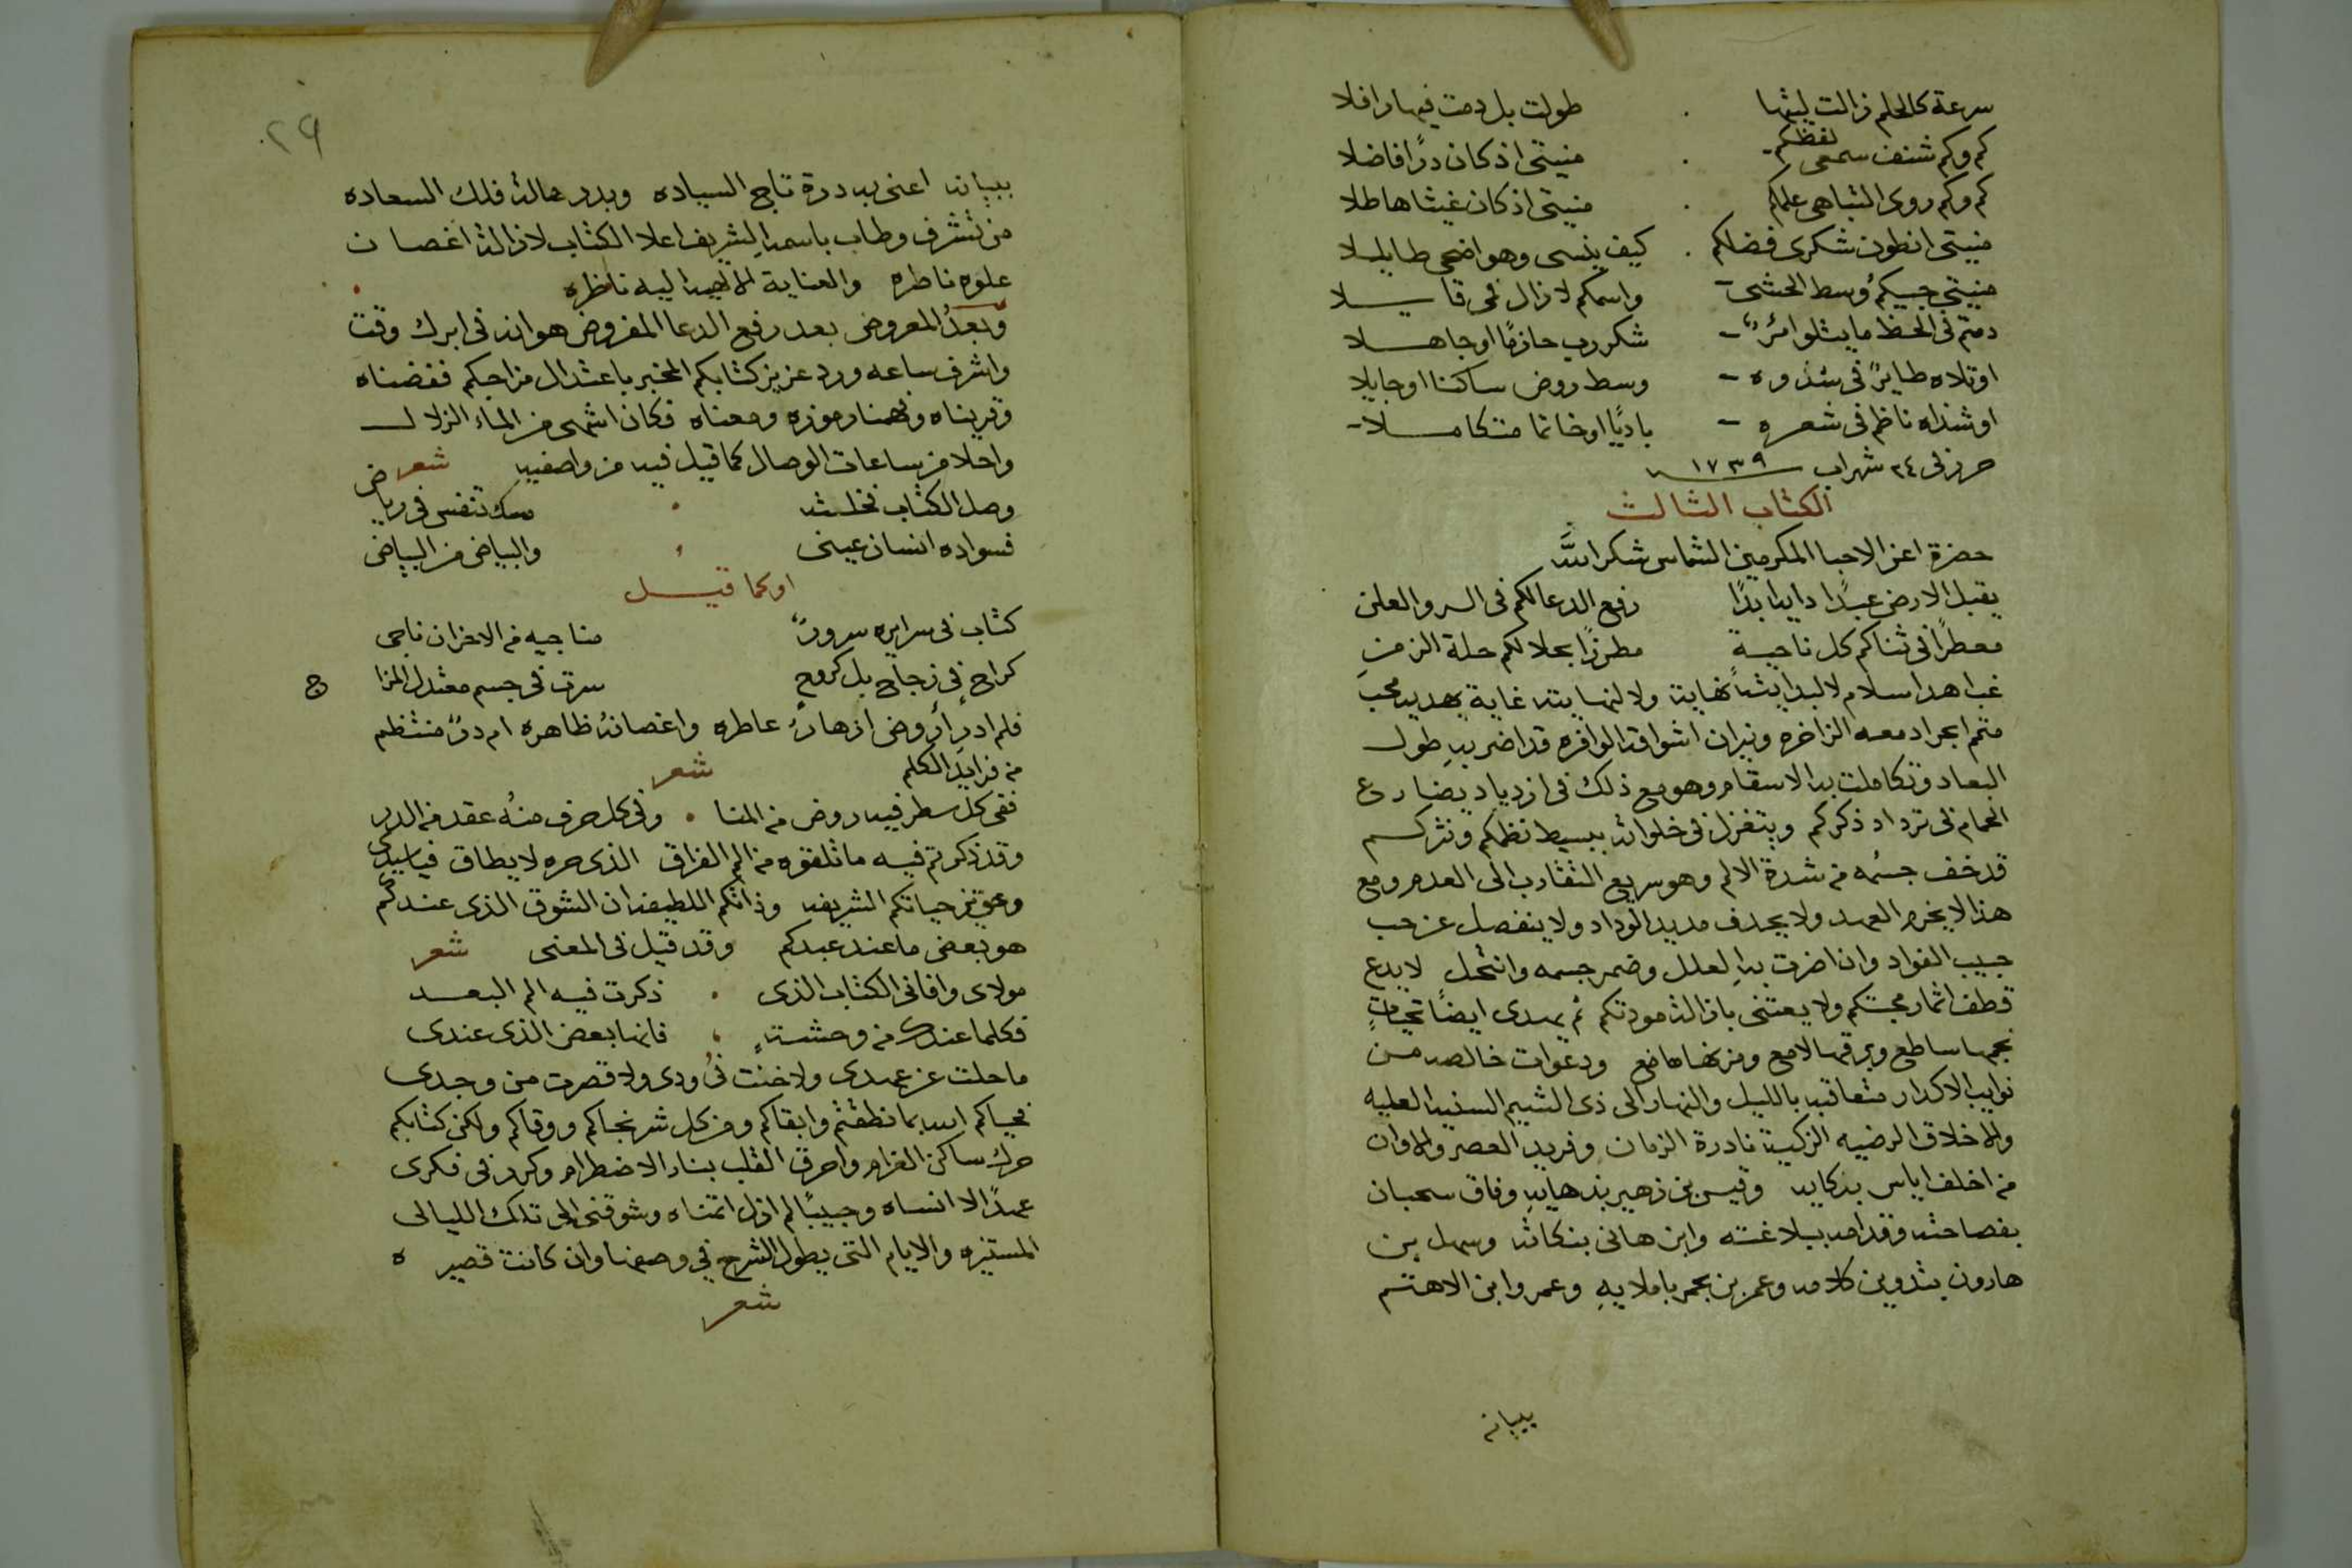 سرعة كالحلم زالت ليتها طولت بل دمت فيها رافلا
كم وكم شنف سمعى لفظكم منيتى اذ كان درًا فاضلا
كم وكم روى التباهى علمكم منيتى اذ كان غيثا هاطلا
منيتى ان طون شكرى فضلكم كيف ينسى وهو اضحى طايلا
منيتى حبيكم وسط الحشى واسمكم لا زال فى قايلا
دمتم فى الحظ ما يتلوا مرٌ شكر رب حازمًا او جاهلا
او تلاه طايرٌ فى شدوه وسط روض ساكنا او جايلا
او شداه ناظم فى شعره باديًا او خاتما متكاملا
حرر فى ٢٤ شهر اب ١٧٣٩
الكتاب الثالث
حضرة اعز الاحبا المكرمين الشماس شكر الله
يقبل الارض عبدًا دايما ابدًا رفع الدعا لكم فى السر والعلن
معطرًا فى ثناكم كل ناحية مطرزًا بحلا لكم حلة الزمن
غب اهدا سلام لا لبدايته نهاية ولا لنهايته غاية يهديه محب
متم ابحر ادمعه الزاخره ونيران اشواقه الوافره قد اضر به طول
البعاد وتكاملت به الاسقام وهو مع ذلك فى ازدياد يضارع
الحمام فى ترداد ذكركم ويتغزل فى خلواته ببسيط نظمكم ونثركم
قد خف جسمه من شدة الالم وهو سريع التقارب الى العدم ومع
هذا لا يخرم العهد ولا يحدف مديد الوداد ولا ينفصل عن حب
حبيب الفواد وان اضرت به العلل وضمر جسمه وانتحل لا يدع
قطف اثمار محبتكم ولا يعتنى بازالة مودتكم ثم يهدى ايضًا تحيات
نجمها ساطع وبرقها لامع ومزنها هامع ودعوات خالصه من
نوايب الاكدار متعاقبه بالليل والنهار الى ذى الشيم السنيه العليه
والاخلاق الرضيه الزكية نادرة الزمان وفريد العصر والاوان
من اخلف اياس بذكايه وقيس بن زهير بدهايه وفاق سحبان
بفصاحته وقدامه ببلاغته وابن هانى بنكاته وسهل بن
هارون بتدوين كلامه وعمر بن بحر باملايه وعمر وابن الاهتم
ببيانه
٢٩
ببيانه اعنى به درة تاج السياده وبدر هالة فلك السعاده
من تشرف وطاب باسمه الشريف اعلا الكتاب لا زالة اغصان
علوه ناطره والعناية الالهيه اليه ناظره
وبعدُ المعروض بعد رفع الدعا المفروض هو انه فى ابرك وقت
واشرف ساعه ورد عزيز كتابكم المخبر باعتدال مزاجكم ففضناه
وقريناه وفهمنا رموزه ومعناه فكان اشهى من الماء الزلال
واحلا من ساعات الوصال كما قيل فيه من واصفيه شعر
وصل الكتاب فخلته مسك تنفس فى رياض
فسواده انسان عينى والبياض من البياض
او كما قيل
كتاب فى سرايره سرورٌ مناجيه من الاحزان ناجى
كراحٍ فى زجاجٍ بل كروحٍ سرت فى جسم معتدل المزاج
فلم ادر اروض ازهارهُ عاطره واغصانهُ ظاهره ام درٌ منتظم
من فرايد الكلم شعر
ففى كل سطر فيه روض من المنا وفى كل حرف منهُ عقد من الدر
وقد ذكرتم فيه ما تلقوه من الم الفراق الذى حره لا يطاق فيا سيدى
وحق عزيز حياتكم الشريفه وذاتكم اللطيفه ان الشوق الذى عندكم
هو بعض ما عند عبدكم وقد قيل فى المعنى شعر
مولاى وافانى الكتاب الذى ذكرت فيه الم البعد
فكلما عندك من وحشتهٍ فانها بعض الذى عندى
ما حلت عن عهدى ولا خنت فى ودى ولا قصرت من وجدى
فحياكم الله بما نطقتم وابقاكم ومن كل شر نجاكم ووقاكم ولكن كتابكم
حرك ساكن الغرام واحرق القلب بنار الاضطرام وكرر فى فكرى
عهدًا لا انساه وحبيبًا لم ازل اتمناه وشوقنى الى تلك الليالى
المستنيره والايام التى يطول الشرح فى وصفها وان كانت قصيره
شعر